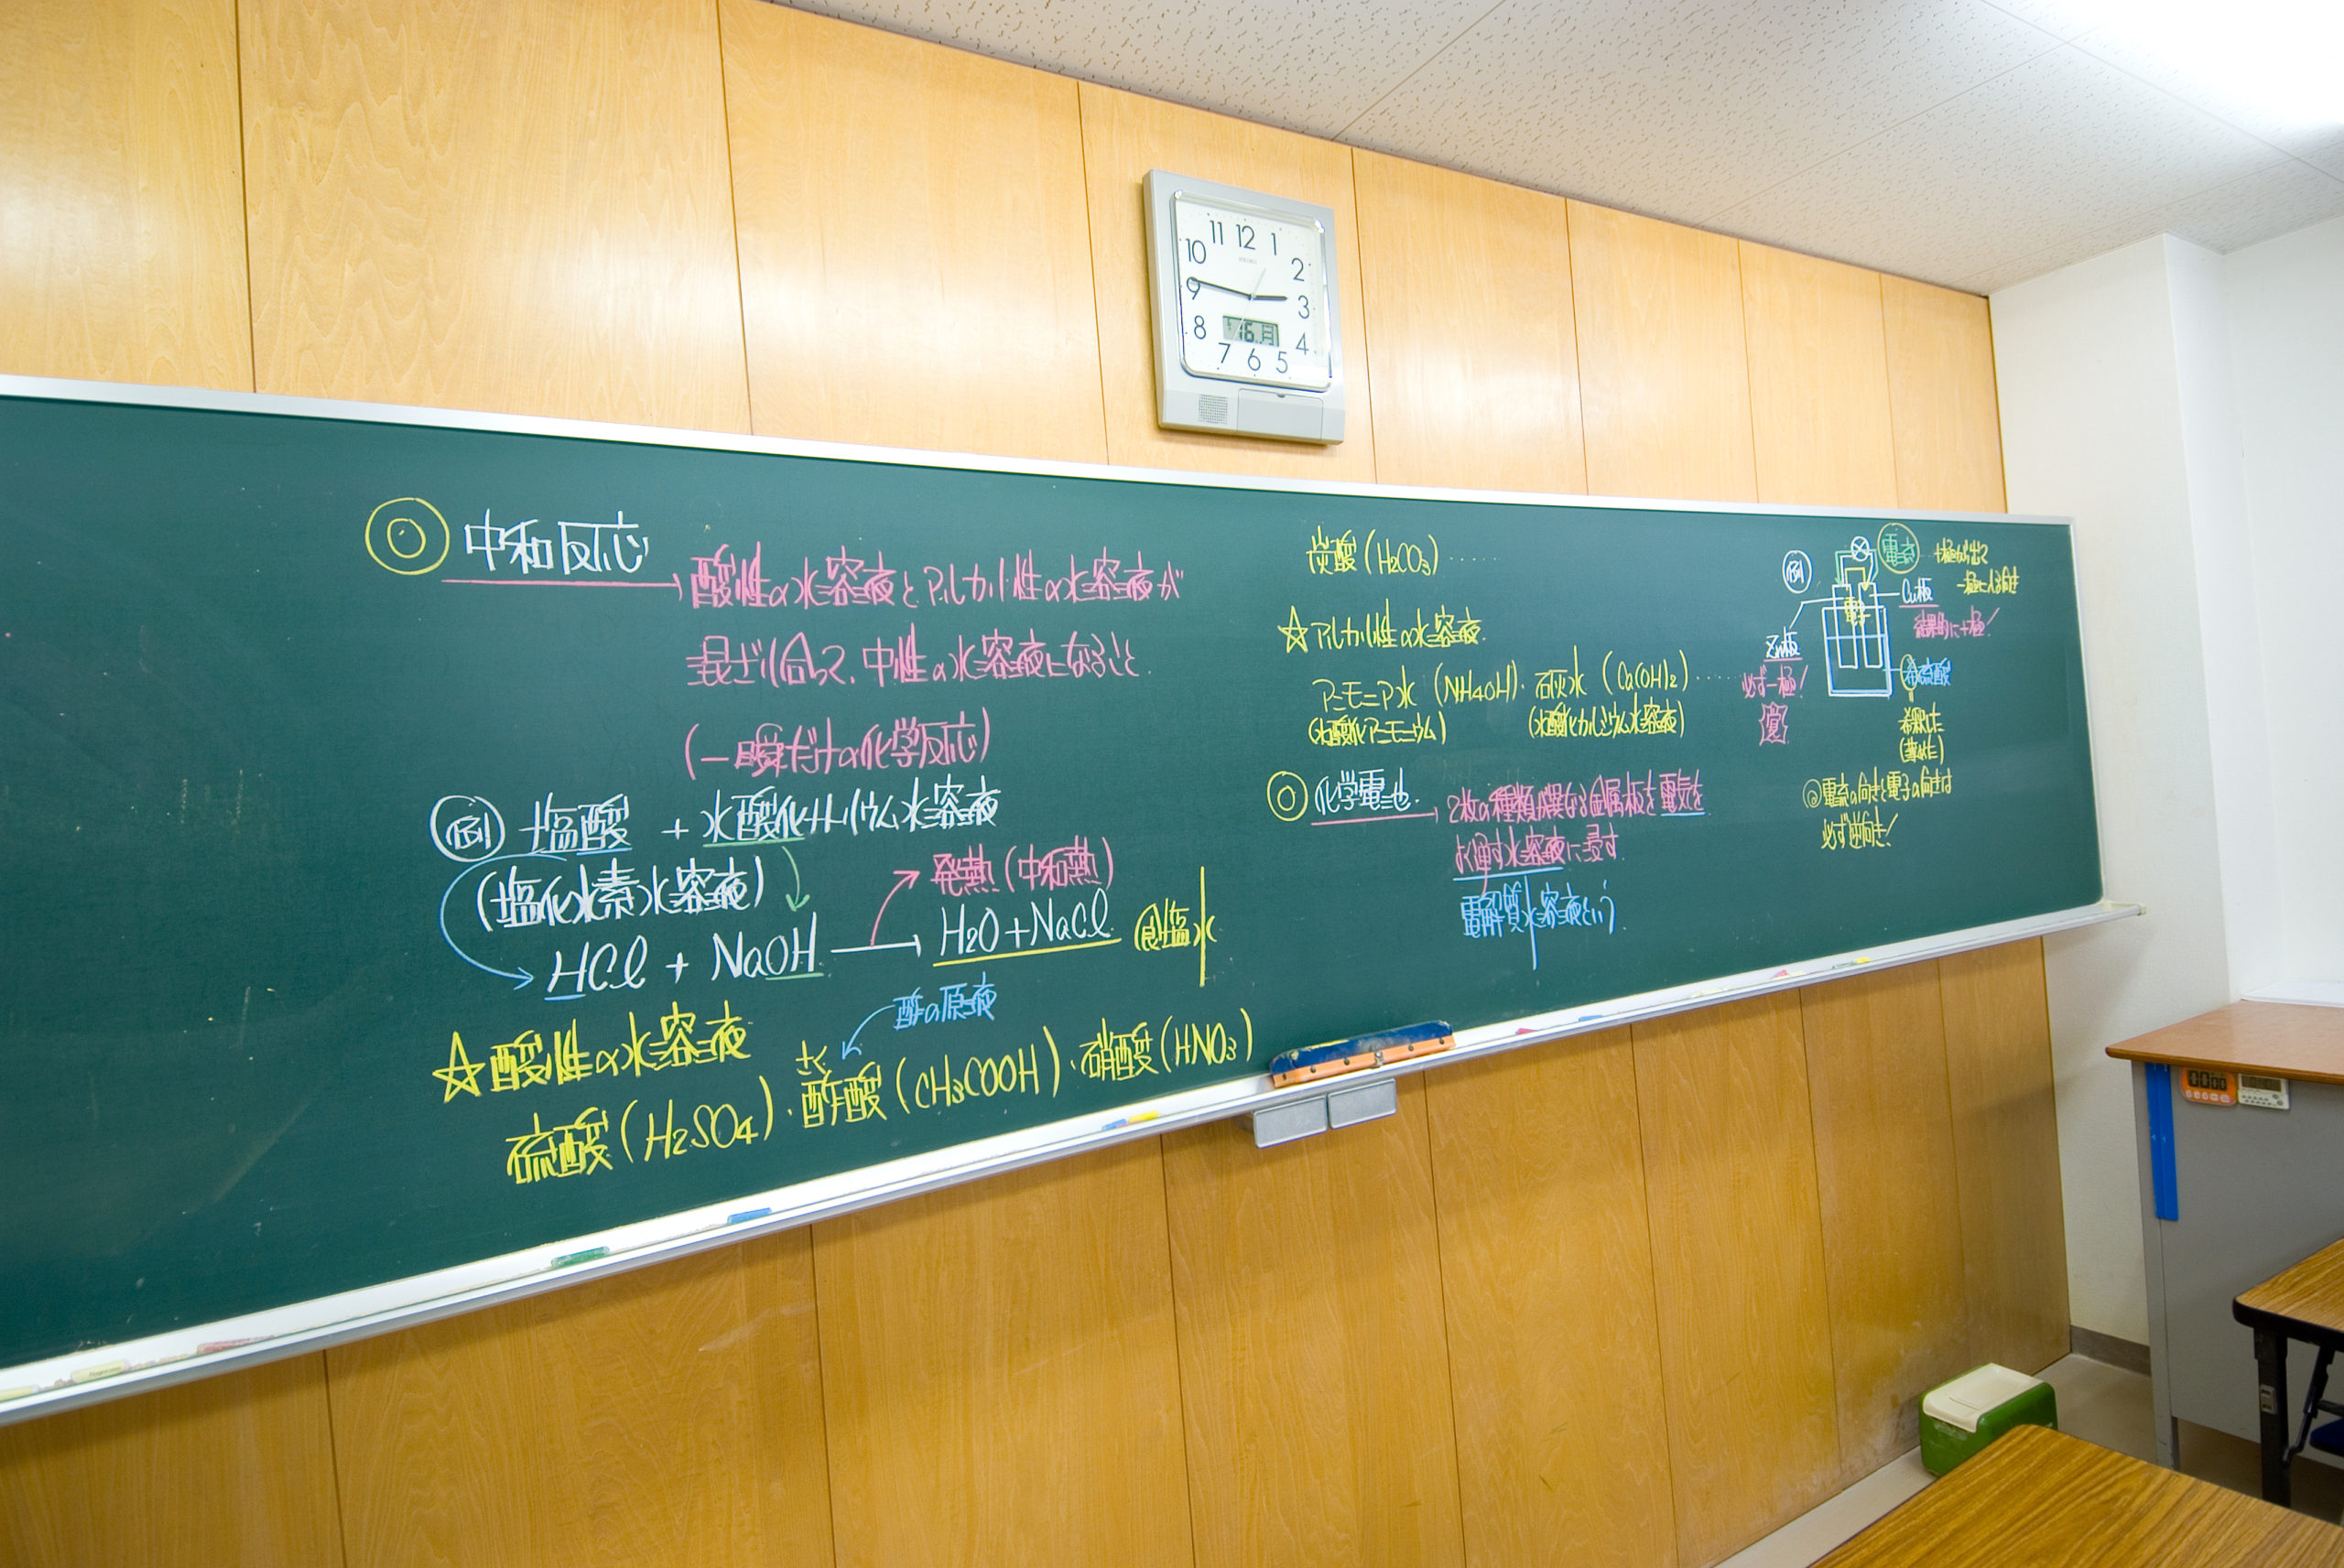 ◎ 中和反応
酸性の水溶液とアルカリ性の水溶液が
混ざり合って、中性の水溶液になること。
(一瞬だけの化学反応)
例 塩酸 + 水酸化ナトリウム水溶液
(塩化水素水溶液)
発熱(中和熱)
HCl + NaOH → H2O+NaCl 食塩水
☆酸性の水溶液
酢の原液
さく
硫酸(H2SO4)・酢酸(CH3COOH)・硝酸(HNO3)
炭酸(H2CO3)……
☆アルカリ性の水溶液
アンモニア水(NH4OH)・石灰水(Ca(OH)2)……
(水酸化アンモニウム) (水酸化カルシウム水溶液)
◎ 化学電池
2枚の種類が異なる金属板を電気を
よく通す水溶液に浸す。
電解質水溶液という。
例
電流
+極から出て
-極に入る向き
電子
Cu板
結果的に+極!
Zn板
必ず-極!
覚
希硫酸
希釈した
(薄めた)
◎電流の向きと電子の向きは
必ず逆向き!
11 12 1
10 2
9 3
8 4
7 6 5
SEIKO
16 月
00 00